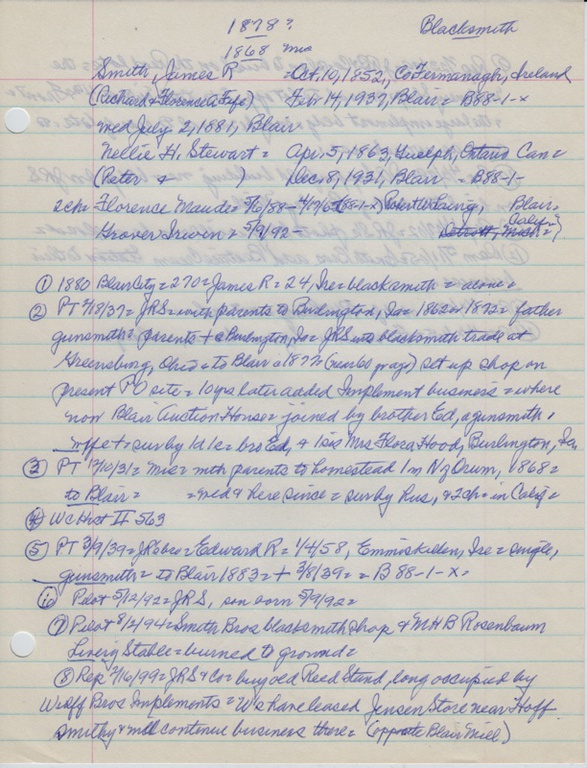 1878?
Blacksmith
1868 mia
Smith, James R = Oct. 10, 1852, Co Fermanagh, Ireland
(Richard & Florence A. Fife) Feb 14, 1937, Blair = B88-1-x
med July 2, 1881, Blair
Nellie H. Stewart = Apr. 5, 1863, Guelph, Ontario Can =
(Peter & ) Dec. 8, 1931, Blair = B88-1-
2ch = Florence Maude = 5/6/88 - Blair,
Grover Irwin = 5/9/92 - Detroit, Mich = Calif =)
① 1880 Blair City = 270 = James R = 24, Ire = blacksmith = alone =
② PT 2/18/37 = JRS = with parents to Burlington, Ia = 1862 or 1872 = father
gunsmith = parents + @ Burlington, Ia = JRS into blacksmith trade at
Greensburg, Ohio = to Blair @ 1877 (near 60 yrs ago) set up shop on
present PO site = 10 yrs later added Implement business = where
now Blair Auction House = joined by brother Ed, a gunsmith,
wife + = sur by 1d 1s = bro Ed, & 1 sis Mrs Flora Hood, Burlington, Ia
③ PT 12/10/31 = Mrs = with parents to homestead 1m N of Orum, 1868 =
to Blair = = med & here since = sur by hus, & 2ch = in Calif =
④ Wc Hist II 563
⑤ PT 3/9/39 = JR's bro = Edward R = 1/4/58, Enniskillen, Ire = single,
gunsmith = to Blair 1883 = + 3/8/39 = = B 88-1-x =
⑥ Pilot 5/12/92 = JRS, son born 5/9/92 =
⑦ Pilot 8/2/94 = Smith Bros blacksmith shop & MHB Rosenbaum
Livery Stable = burned to ground =
⑧ Rep 2/16/99 = JRS & Co = buy old Reed Stand, long occupied by
Wulff Bros Implements = We have leased Jensen Store near Hoff
smithy & will continue business there = (opposite Blair Mill)